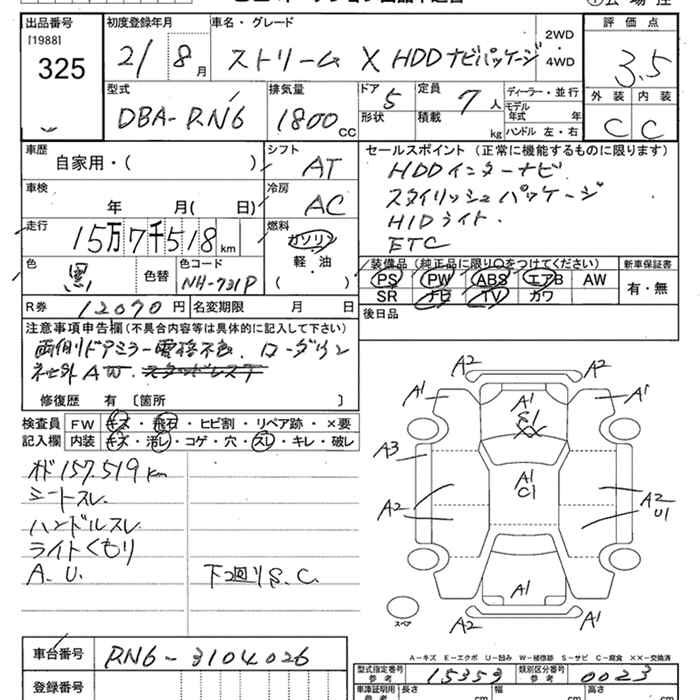 出品番号 初度登録年月 車名・グレード 評価点
[1988]
325 21/8月 ストリーム X HDDナビパッケージ 2WD 3.5
4WD
型式 排気量 ドア 定員 ディーラー・並行 外装 内装
DBA-RN6 1800cc 5 7人 モデル年式 年 C C
形状 積載 kg ハンドル 左・右
車歴 シフト セールスポイント (正常に機能するものに限ります)
自家用・( ) AT HDDインターナビ
車検 冷房 スタイリッシュパッケージ
年 月( 日) AC HIDライト.
走行 燃料 ETC
15万7千518km ガソリン
軽・油
( )
色 色替 色コード 装備品(純正品に限り○をつけてください) 新車保証書
黒 NH-731P PS PW ABS エアB AW 有・無
SR ナビ TV カワ
R券 12070円 名変期限 月 日 後日品
注意事項申告欄(不具合内容等は具体的に記入して下さい)
両側ドアミラー電格不良 ローダウン
社外AW. スタッドレス
修復歴 有〔箇所 〕
検査員 FW キズ・飛石・ヒビ割・リペア跡・×要
記入欄 内装 キズ・汚レ・コゲ・穴・スレ・キレ・破レ
オド157.519km
シートスレ
ハンドルスレ
ライトくもり
A.U. 下回りS.C.
A2 A2
A1 A1 A1
S1
XX
A3 A1
C1
A2 A2
U1
A1
A2 A1
スペア
A-キズ E-エクボ U-凹み W-補修跡 S-サビ C-腐食 XX-交換済
車台番号 RN6-3104026
型式指定番号 参考 15359 類別区分番号 参考 0023
登録番号 車庫証明用 参考 長さ cm 幅 cm 高さ cm